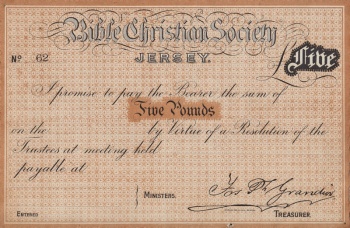 Bible Christian Society
JERSEY.
No 62
£ Five
I promise to pay the Bearer the sum of
Five Pounds
on the by Virtue of a Resolution of the
Trustees at meeting held
payable at
MINISTERS.
ENTERED
TREASURER.